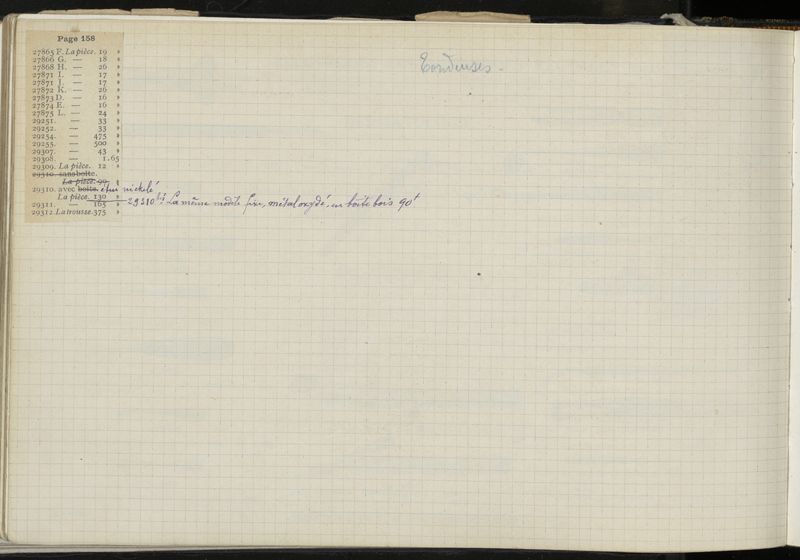 Page 158
Tondeuses.
27865 F. La pièce. 19 »
27866 G. — 18 »
27868 H. — 26 »
27871 I. — 17 »
27871 J. — 17 »
27872 K. — 26 »
27873 D. — 16 »
27874 E. — 16 »
27875 L. — 24 »
29251. — 33 »
29252. — 33 »
29254. — 475 »
29255. — 500 »
29307. — 43 »
29308. — 1.65
29309. La pièce. 12 »
29310. sans boîte.
La pièce. 90 »
29310. avec boîte. étui nickelé
La pièce. 130 »
29310 bis La même modèle fixe, métal oxydé, en boîte bois 90f
29311. — 165 »
29312. La trousse. 375 »